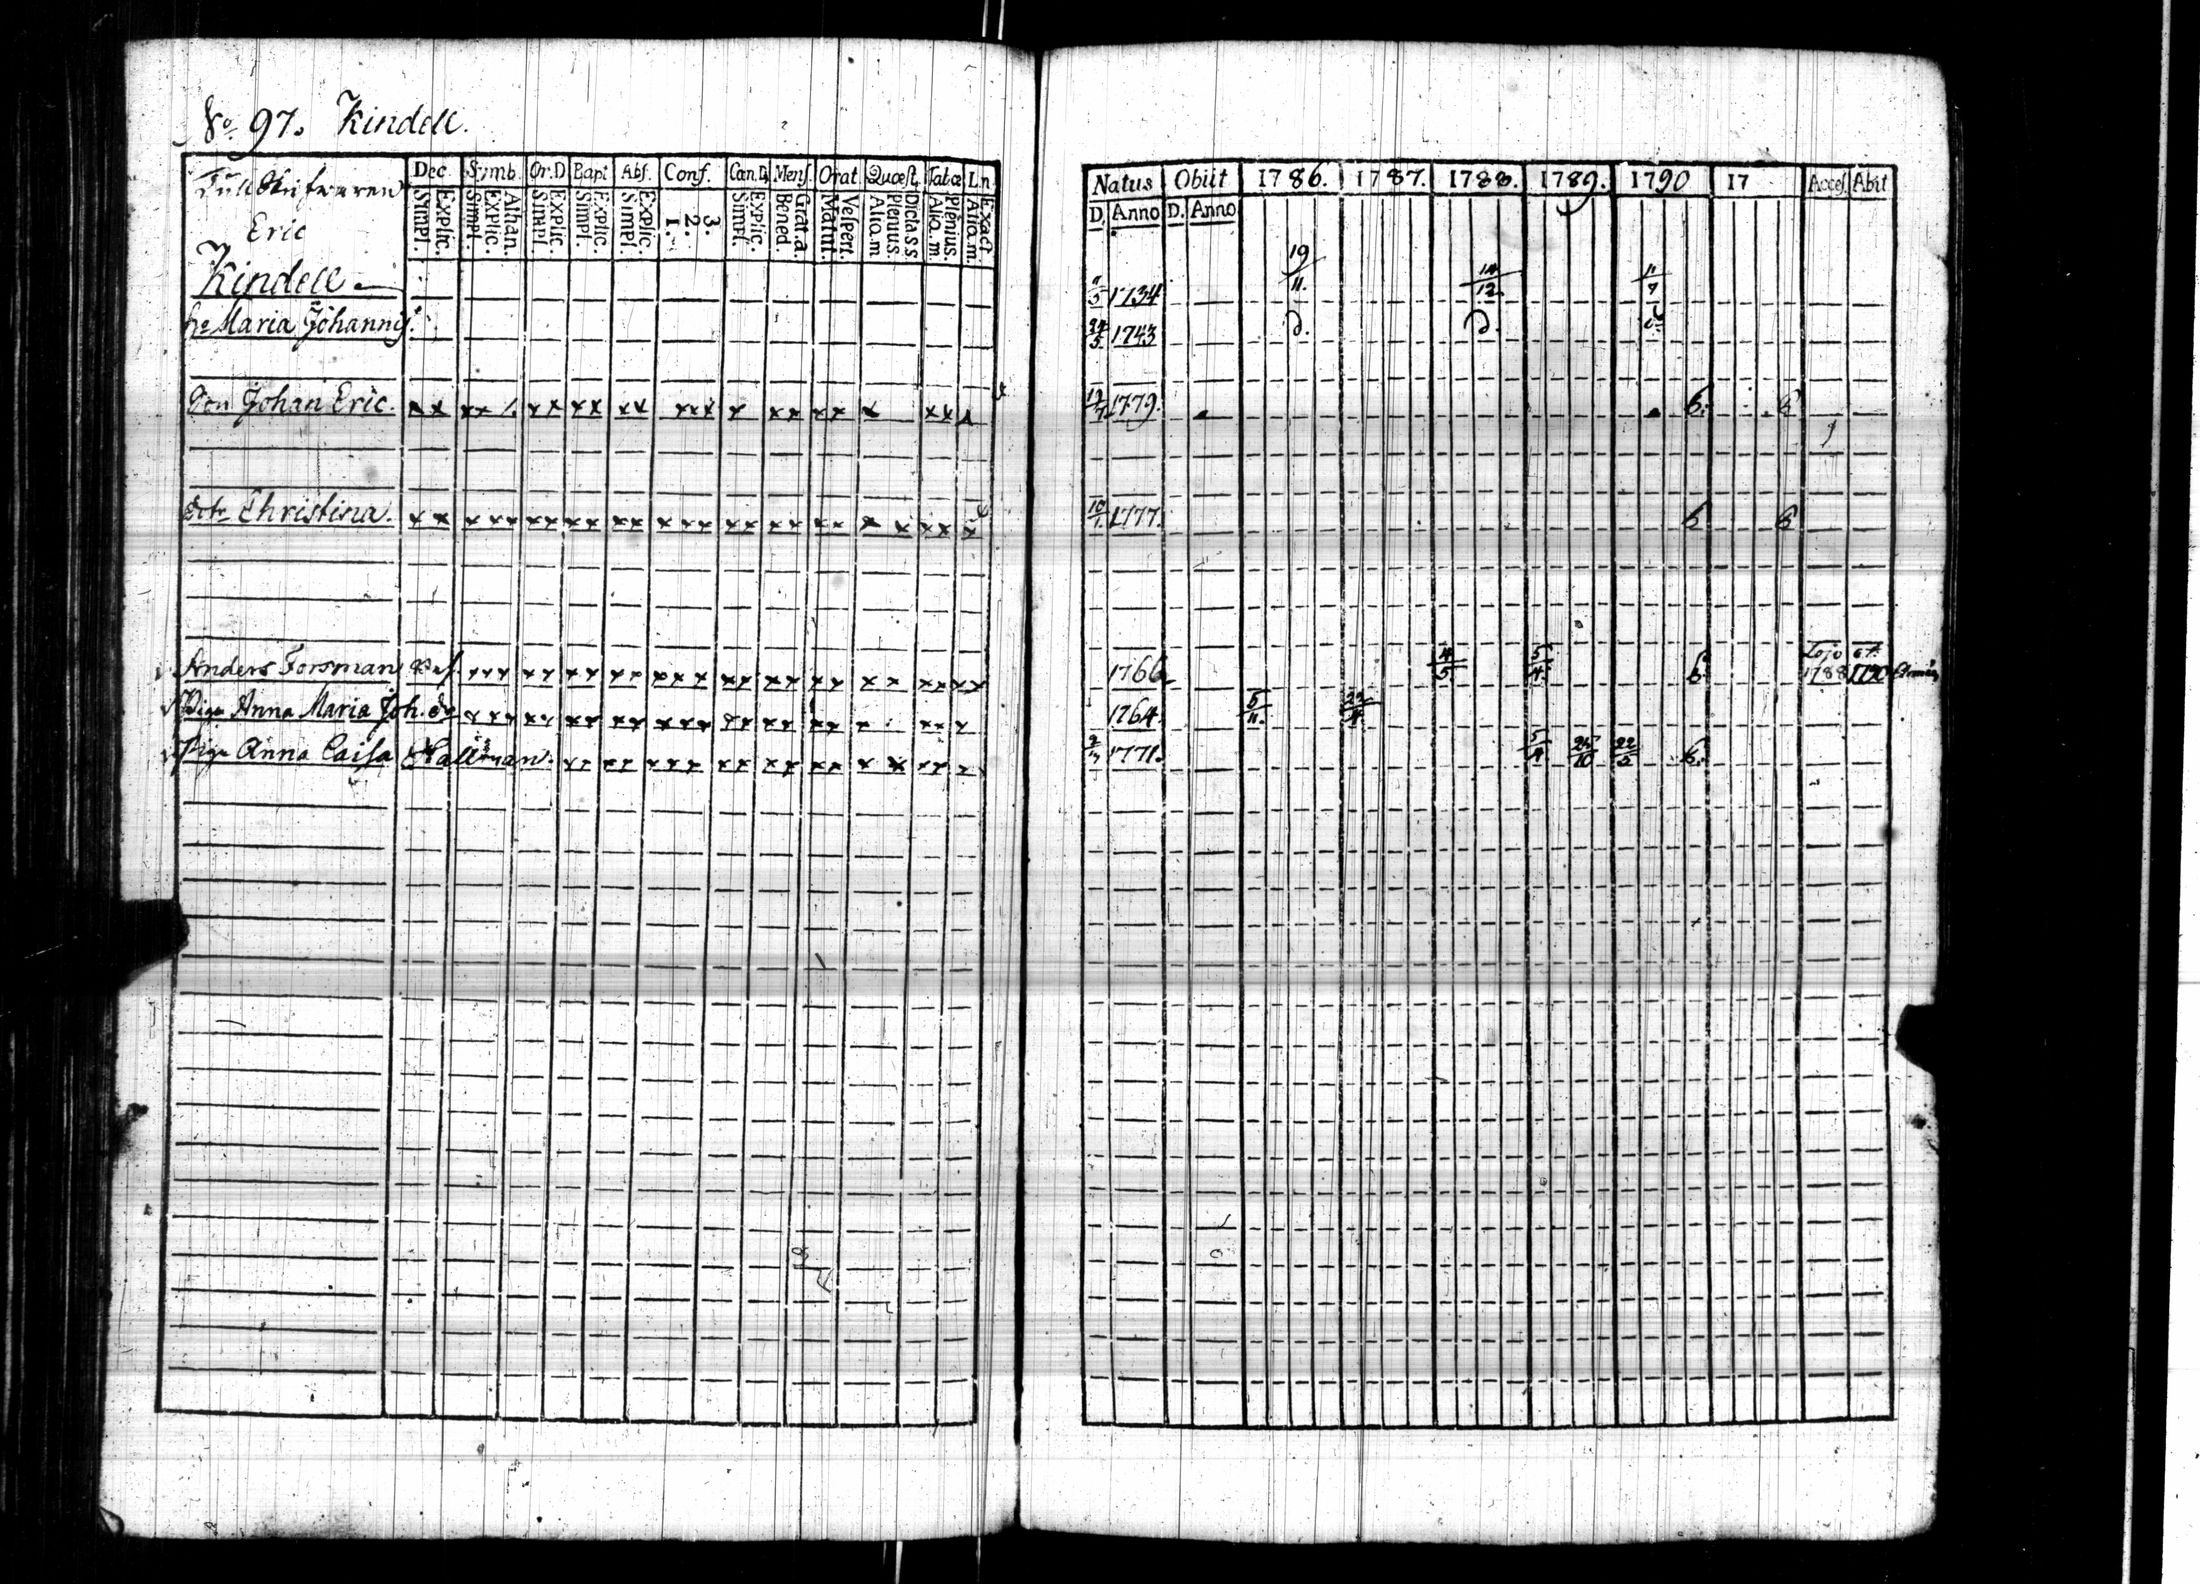 No 97. Kindell.
Dec. Symb. Or.D. Bapt. Abs. Conf. Cæn.D. Mens. Orat. Quæst. Tabæ L.n.
Explic. Simpl. Athan. Explic. Simpl. Explic. Simpl. Explic. Simpl. Explic. Simpl. 3. 2. 1. Explic. Simpl. Grat.a. Bened. Vespert. Matut. Dicta S.S. Plenius. Alio.m. Plenius. Alio.m. Exact Alio.m.
Eric
Kindell
h: Maria Johannis
Son Johan Eric. x x x x / x x x x x x x x x x x x x x x x x x
dotr Christina. x x x x x x x x x x x x x x x x x x x x x x x x x
Anders Forsman x x x x x x x x x x x x x x x x x x x x x x
Piga Anna Maria Joh. dr x x x x x x x x x x x x x x x x x x x x x x x
Piga Anna Caisa Hallman. x x x x x x x x x x x x x x x x x x
Natus Obiit 1786. 1787. 1788. 1789. 1790 17 Acces. Abiit
D. Anno D. Anno
1734 19/11. 14/12 11/7
24/5 1743 d. d. d.
19/7 1779. 6. 6
10/1 1777. 6 6
1766 4/5 5/4. 6. Lojo 1788 1790
1764. 5/11. 22/4.
1771. 5/4 25/10 22/2 6.